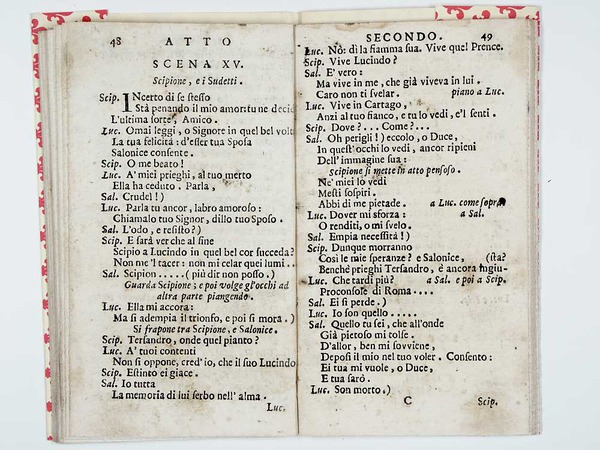 48 ATTO
SCENA XV.
Scipione, e i Sudetti.
Scip. INcerto di se stesso
Stà penando il mio amor: tu ne decid
L'ultima sorte, Amico.
Luc. Omai leggi, o Signore in quel bel volt
La tua felicità: d'esser tua Sposa
Salonice consente.
Scip. O me beato!
Luc. A' miei prieghi, al tuo merto
Ella ha ceduto. Parla,
Sal. Crudel!)
Luc. Parla tu ancor, labro amoroso:
Chiamalo tuo Signor, dillo tuo Sposo.
Sal. L'odo, e resisto?)
Scip. E sarà ver che al fine
Scipio a Lucindo in quel bel cor succeda?
Non me 'l tacer: non mi celar quei lumi..
Sal. Scipion.....( più dir non posso.)
Guarda Scipione; e poi volge gl'occhi ad
altra parte piangendo.
Luc. Ella mi accora:
Ma si adempia il trionfo, e poi si mora.)
Si frapone tra Scipione, e Salonice.
Scip. Tersandro, onde quel pianto?
Luc. A' tuoi contenti
Non si oppone, cred'io, che il suo Lucindo
Scip. Estinto ei giace.
Sal. Io tutta
La memoria di lui serbo nell' alma.
Luc.
SECONDO. 49
Luc. Nò: dì la fiamma sua. Vive quel Prence.
Scip. Vive Lucindo?
Sal. E' vero:
Ma vive in me, che già viveva in lui.
Caro non ti svelar. piano a Luc.
Luc. Vive in Cartago,
Anzi al tuo fianco, e tu lo vedi, e'l senti.
Scip. Dove?... Come?...
Sal. Oh perigli!) eccolo, o Duce,
In quest'occhi lo vedi, ancor ripieni
Dell' immagine sua:
Scipione si mette in atto pensoso.
Ne' miei lo vedi
Mesti sospiri.
Abbi di me pietade. a Luc. come sopra
Luc. Dover mi sforza: a Sal.
O renditi, o mi svelo.
Sal. Empia necessità!)
Scip. Dunque morranno
Così le mie speranze? e Salonice, (sta?
Benchè prieghi Tersandro, è ancora ingiu-
Luc. Che tardi più? a Sal. e poi a Scip.
Proconsole di Roma....
Sal. Ei si perde.)
Luc. Io son quello.....
Sal. Quello tu sei, che all'onde
Già pietoso mi tolse.
D'allor, ben mi sovviene,
Deposi il mio nel tuo voler. Consento:
Ei tua mi vuole, o Duce,
E tua sarò.
Luc. Son morto.)
C Scip.